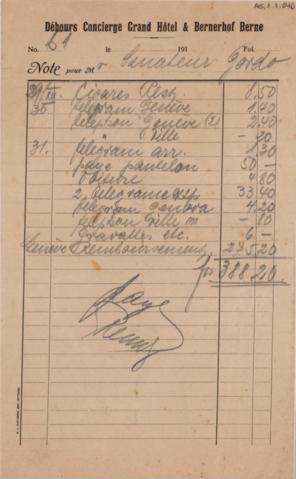 AG. 1. 1. 246
Débours Concierge Grand Hôtel & Bernerhof Berne
No. 61 le 191 Fol.
Note pour Mr Senateur Gordo
29/XII. Cigares Rest. 8.50
30 telegram Genève 1.40
telephon Geneve (2) 2.40
" Ville - 20
31. telegram arr. 1.30
paye pantelon 50 -
Poivre 4.80
2 telegrame exp 33.40
telegram 4.20
telephon Ville - 80
Cravattes etc. 6 -
Genève Remboursement 275.20
frs 388.20
Paye